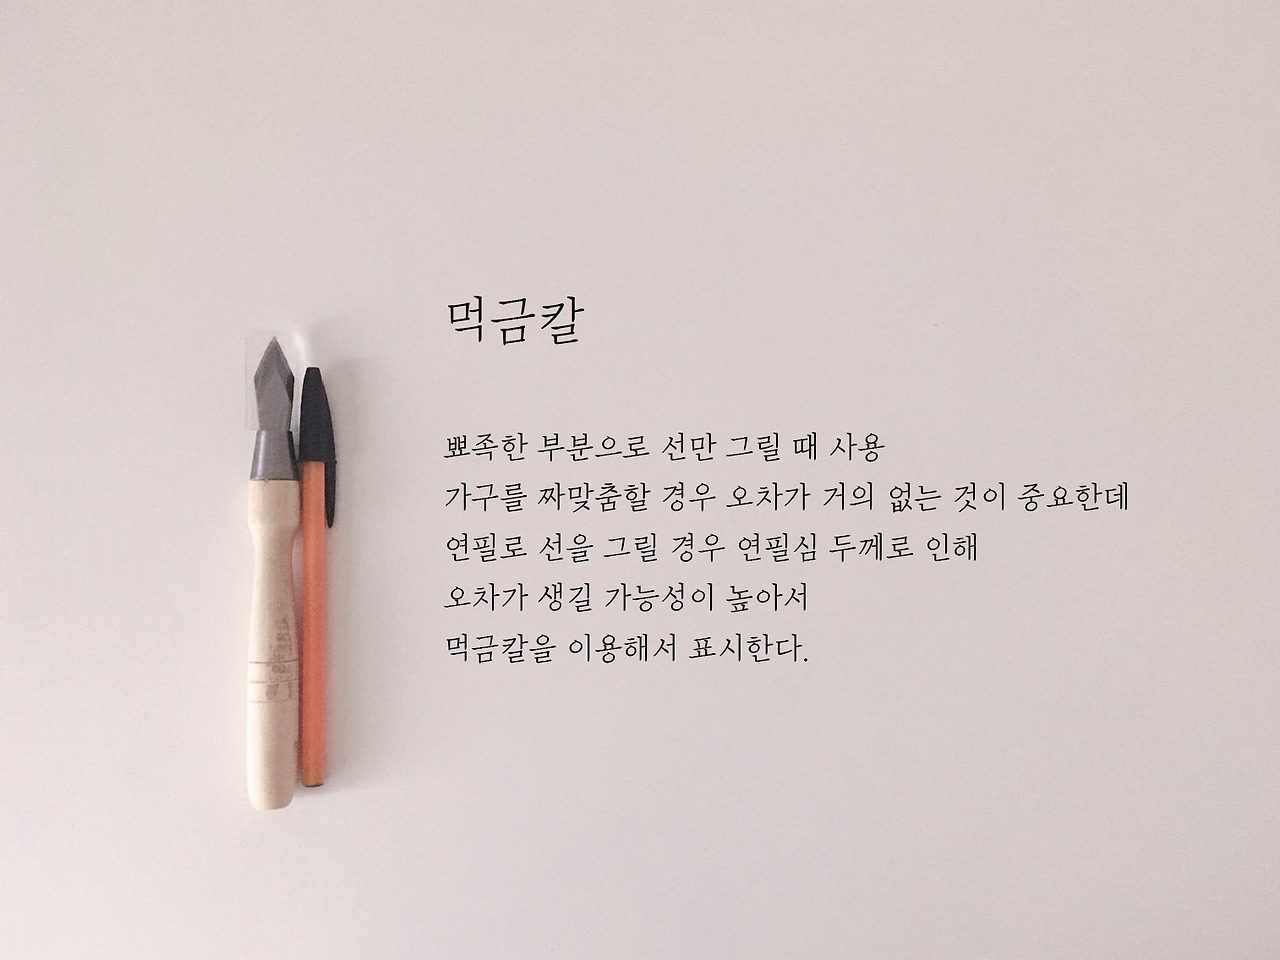 먹금칼
뾰족한 부분으로 선만 그릴 때 사용
가구를 짜맞춤할 경우 오차가 거의 없는 것이 중요한데
연필로 선을 그릴 경우 연필심 두께로 인해
오차가 생길 가능성이 높아서
먹금칼을 이용해서 표시한다.